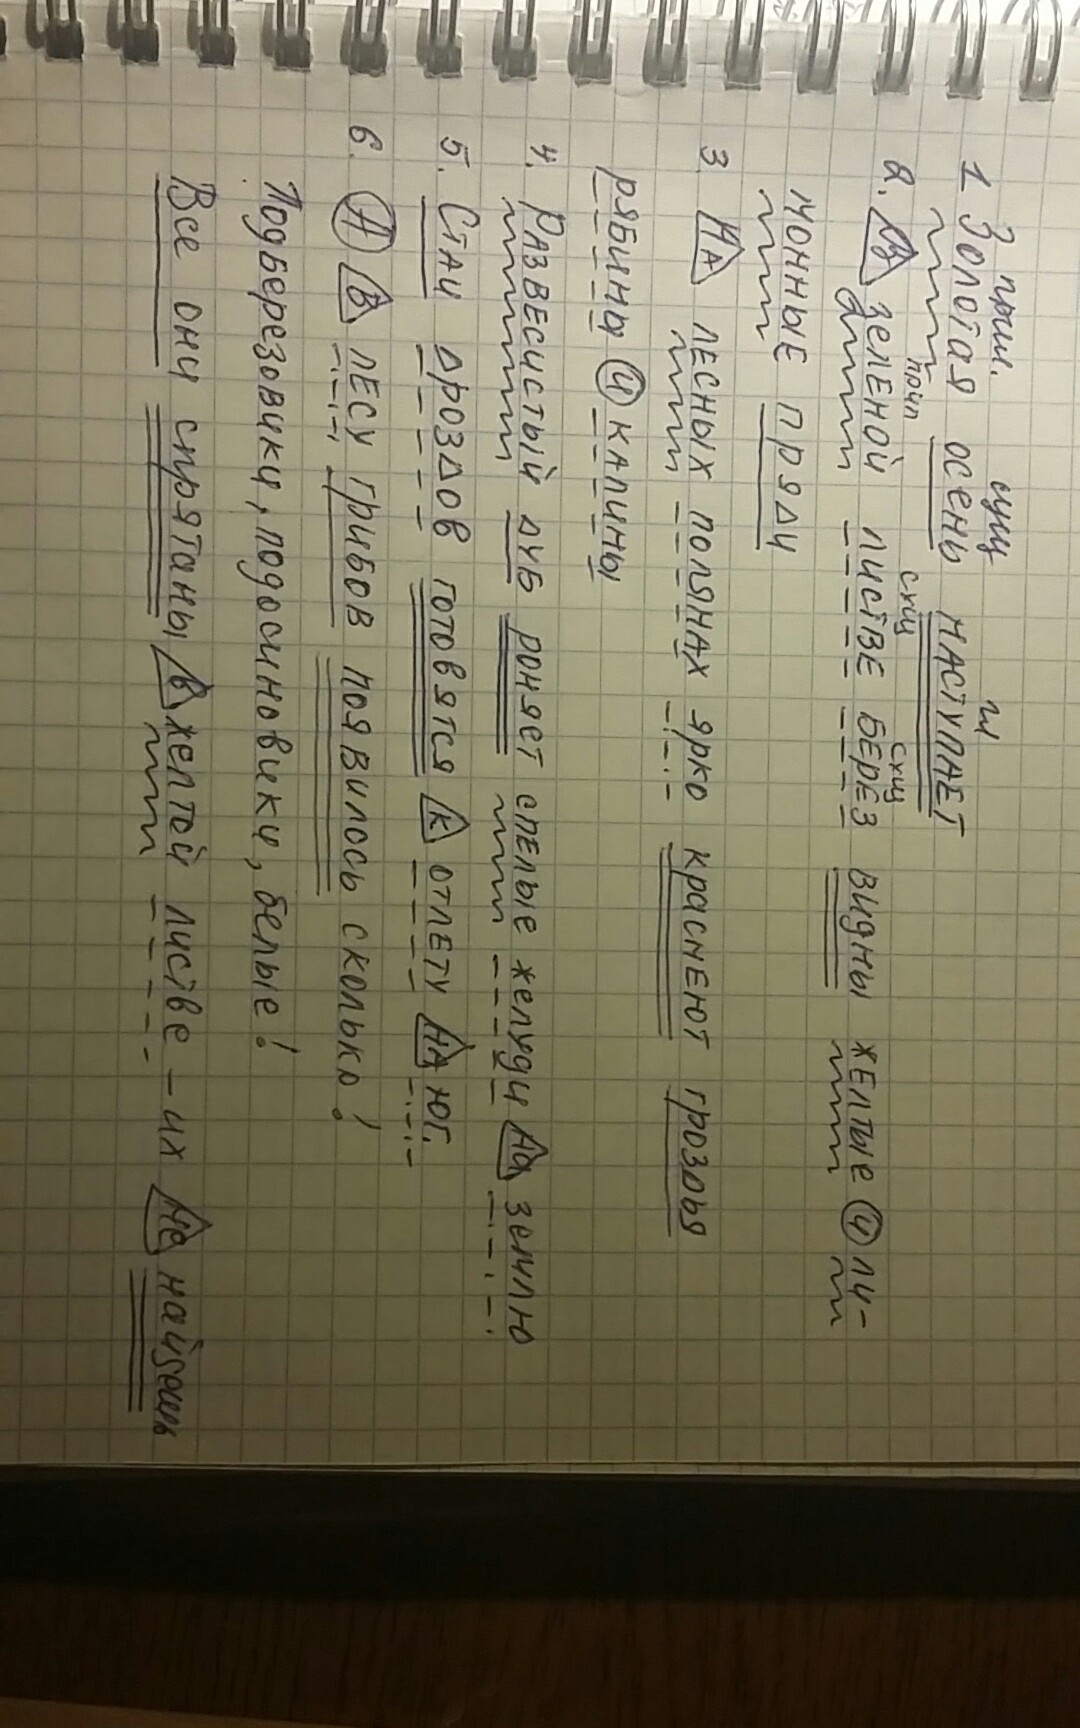 прил. сущ гл
1 Золотая осень НАСТУПАЕТ
прил сущ сущ
2. В зелЕНОЙ ЛИСТВЕ БЕРЁЗ ВИДНЫ ЖЕЛТЫЕ И ЛИ-
МОННЫЕ ПРЯДИ
3. НА ЛЕСНЫХ ПОЛЯНАХ ЯРКО КРАСНЕЮТ ГРОЗДЬЯ
РЯБИНЫ И КАЛИНЫ
4. РАЗВЕСИСТЫЙ ДУБ РОНЯЕТ СПЕЛЫЕ ЖЕЛУДИ НА ЗЕМЛЮ
5. СТАИ ДРОЗДОВ ГОТОВЯТСЯ К ОТЛЕТУ НА ЮГ.
6. А В ЛЕСУ ГРИБОВ ПОЯВИЛОСЬ СКОЛЬКО!
Подберезовики, подосиновики, белые!
Все они спрятаны в желтой листве - их не найдешь